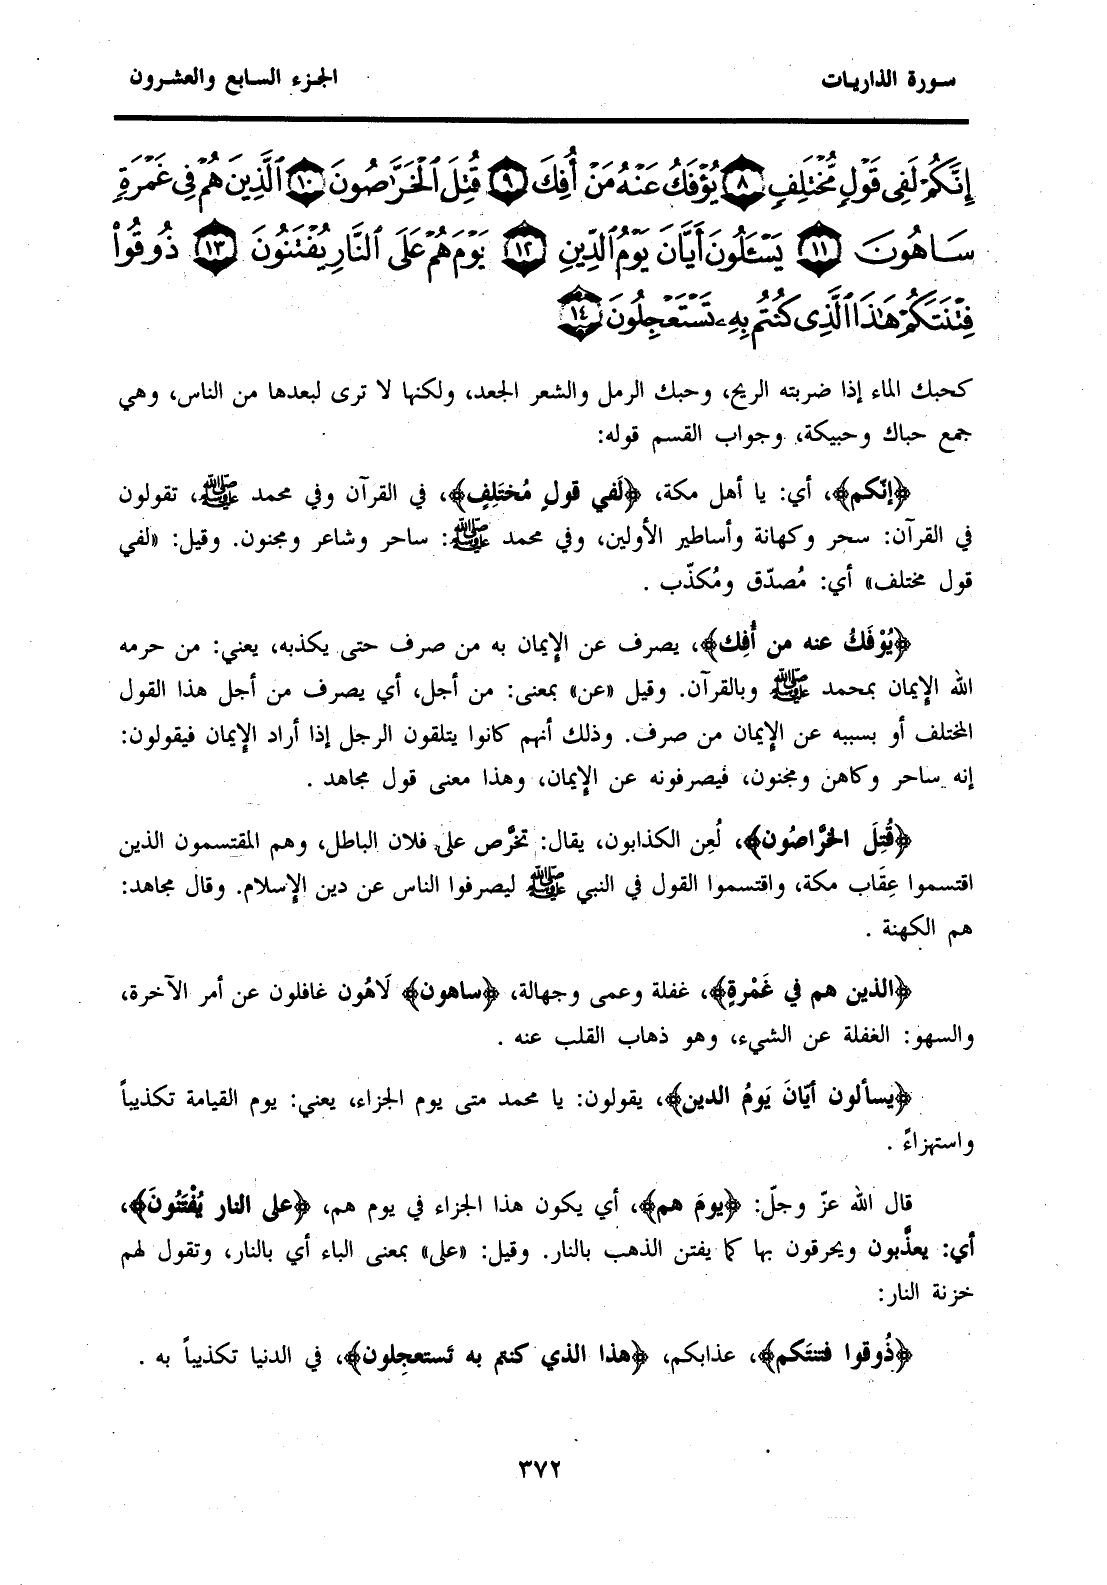 سورة الذاريات
الجزء السابع والعشرون
إِنَّكُمْ لَفِى قَوْلٍ مُّخْتَلِفٍ ﴿٨﴾ يُؤْفَكُ عَنْهُ مَنْ أُفِكَ ﴿٩﴾ قُتِلَ ٱلْخَرَّٰصُونَ ﴿١٠﴾ ٱلَّذِينَ هُمْ فِى غَمْرَةٍ
سَاهُونَ ﴿١١﴾ يَسْـَٔلُونَ أَيَّانَ يَوْمُ ٱلدِّينِ ﴿١٢﴾ يَوْمَ هُمْ عَلَى ٱلنَّارِ يُفْتَنُونَ ﴿١٣﴾ ذُوقُوا۟
فِتْنَتَكُمْ هَٰذَا ٱلَّذِى كُنتُم بِهِۦ تَسْتَعْجِلُونَ ﴿١٤﴾
كحبك الماء إذا ضربته الريح، وحبك الرمل والشعر الجعد، ولكنها لا ترى لبعدها من الناس، وهي
جمع حباك وحبيكة، وجواب القسم قوله:
﴿إنّكم﴾، أي: يا أهل مكة، ﴿لَفي قولٍ مُختَلِفٍ﴾، في القرآن وفي محمد ﷺ، تقولون
في القرآن: سحر وكهانة وأساطير الأولين، وفي محمد ﷺ: ساحر وشاعر ومجنون. وقيل: «لفي
قول مختلف» أي: مُصدّق ومُكذّب .
﴿يُؤْفَكُ عنه من أُفِك﴾، يصرف عن الإيمان به من صرف حتى يكذبه، يعني: من حرمه
الله الإيمان بمحمد ﷺ وبالقرآن. وقيل «عن» بمعنى: من أجل، أي يصرف من أجل هذا القول
المختلف أو بسببه عن الإيمان من صرف. وذلك أنهم كانوا يتلقون الرجل إذا أراد الإيمان فيقولون:
إنه ساحر وكاهن ومجنون، فيصرفونه عن الإيمان، وهذا معنى قول مجاهد .
﴿قُتِلَ الخَرَّاصُون﴾، لُعِن الكذابون، يقال: تخرَّص على فلان الباطل، وهم المقتسمون الذين
اقتسموا عِقَاب مكة، واقتسموا القول في النبي ﷺ ليصرفوا الناس عن دين الإسلام. وقال مجاهد:
هم الكهنة .
﴿الذين هم في غَمْرةٍ﴾، غفلة وعمى وجهالة، ﴿ساهون﴾ لَاهُون غافلون عن أمر الآخرة،
والسهو: الغفلة عن الشيء، وهو ذهاب القلب عنه .
﴿يسألون أيّانَ يَومُ الدين﴾، يقولون: يا محمد متى يوم الجزاء، يعني: يوم القيامة تكذيباً
واستهزاءً .
قال الله عزّ وجلّ: ﴿يومَ هم﴾، أي يكون هذا الجزاء في يوم هم، ﴿على النار يُفْتَنُونَ﴾،
أي: يعذَّبون ويحرقون بها كما يفتن الذهب بالنار. وقيل: «على» بمعنى الباء أي بالنار، وتقول لهم
خزنة النار:
﴿ذُوقوا فتنتَكم﴾، عذابكم، ﴿هذا الذي كنتم به تَستعجِلون﴾، في الدنيا تكذيباً به .
٣٧٢